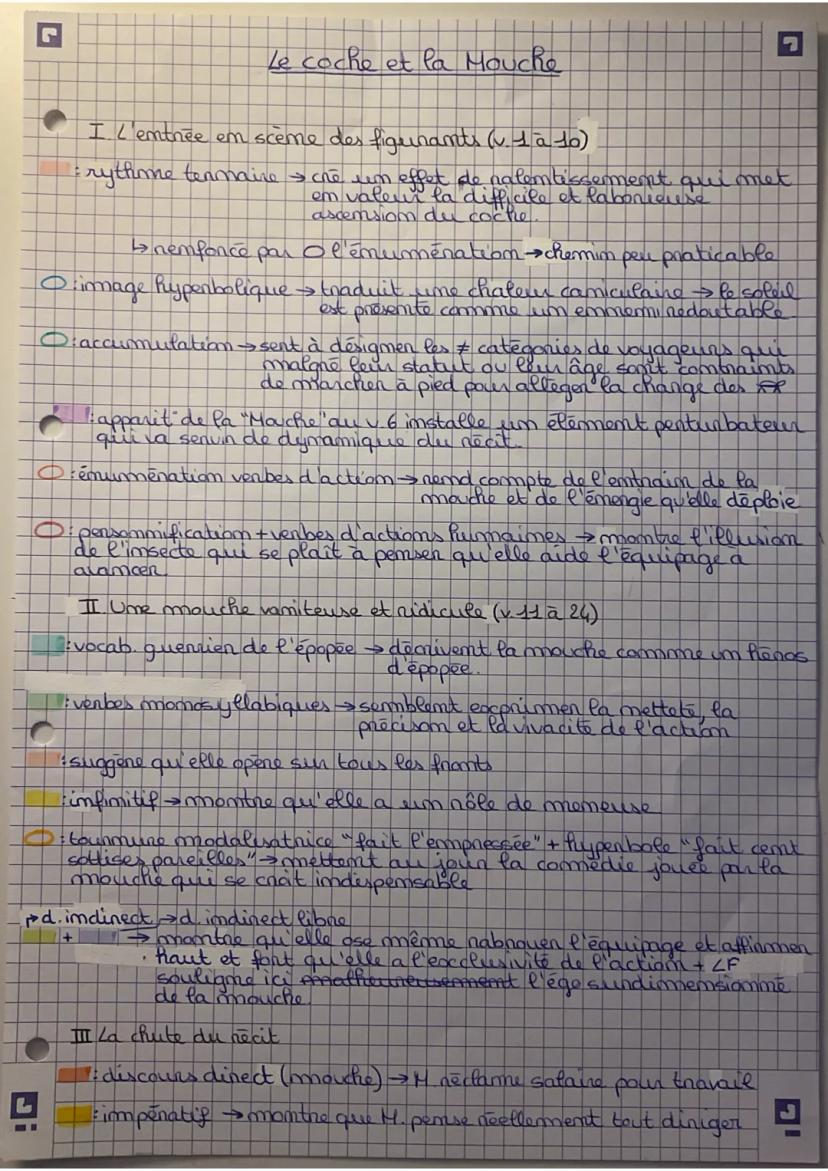 Le coche et la Mouche
I L'entrée en scène des figurants (v.1 à 10)
: rythme ternaire → crée un effet de ralentissement qui met
en valeur la difficile et laborieuse
ascension du coche.
↳ renforcé par O l'énumération → chemin peu praticable
O : image hyperbolique → traduit une chaleur caniculaire → le soleil
est présenté comme un ennemi redoutable
O : accumulation → sert à désigner les ≠ catégories de voyageurs qui
malgré leur statut ou leur âge sont contraints
de marcher à pied pour alléger la charge des
: apparit° de la "Mouche" au v.6 installe un élément perturbateur
qui va servir de dynamique du récit.
O : énumération verbes d'action → rend compte de l'entrain de la
mouche et de l'énergie qu'elle déploie
O : personnification + verbes d'actions humaines → montre l'illusion
de l'insecte qui se plaît à penser qu'elle aide l'équipage a
avancer
II Une mouche vaniteuse et ridicule (v.11 à 24)
: vocab. guerrier de l'épopée → décrivent la mouche comme un héros
d'épopée.
: verbes monosyllabiques → semblent exprimer la netteté, la
précison et la vivacité de l'action
: suggère qu'elle opère sur tous les fronts
: infinitif → montre qu'elle a un rôle de meneuse
O : tournure modalisatrice "fait l'empressée" + hyperbole "fait cent
sottises pareilles" → mettent au jour la comédie jouée par la
mouche qui se croit indispensable
→ d. indirect → d. indirect libre
+ → montre qu'elle ose même rabrouer l'équipage et affirmer
haut et fort qu'elle a l'exclusivité de l'action + LF
souligne ici malheureusement l'égo surdimensionné
de la mouche
III La chute du récit
: discours direct (mouche) → M réclame salaire pour travail
: impératif → montre que M. pense réellement tout diriger